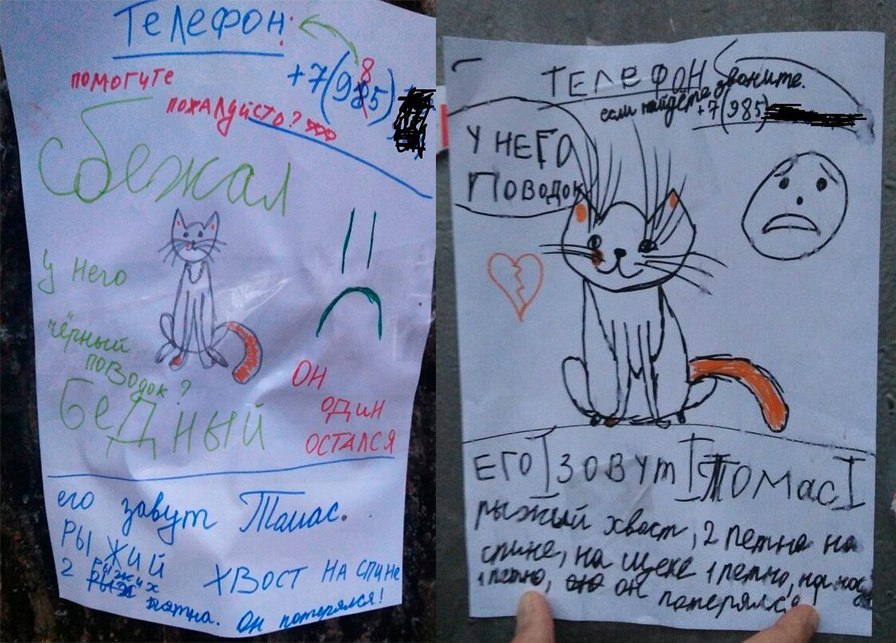 Телефон:
+7(985)
8
помогите
пожалуйсто?
сбежал
у него
чёрный
поводок?
бедный
он
один
остался
его завут Томас.
рыжий хвост на спине
2 рыжих
пятна. он потерялся!
ТЕЛЕФОН
если найдёте звоните.
+7(985)
У НЕГО
ПОВОДОК
ЕГО ЗОВУТ ТОМАС
рыжий хвост, 2 петна на
спине, на щеке 1 петно, на носу
1 петно, он потерялся